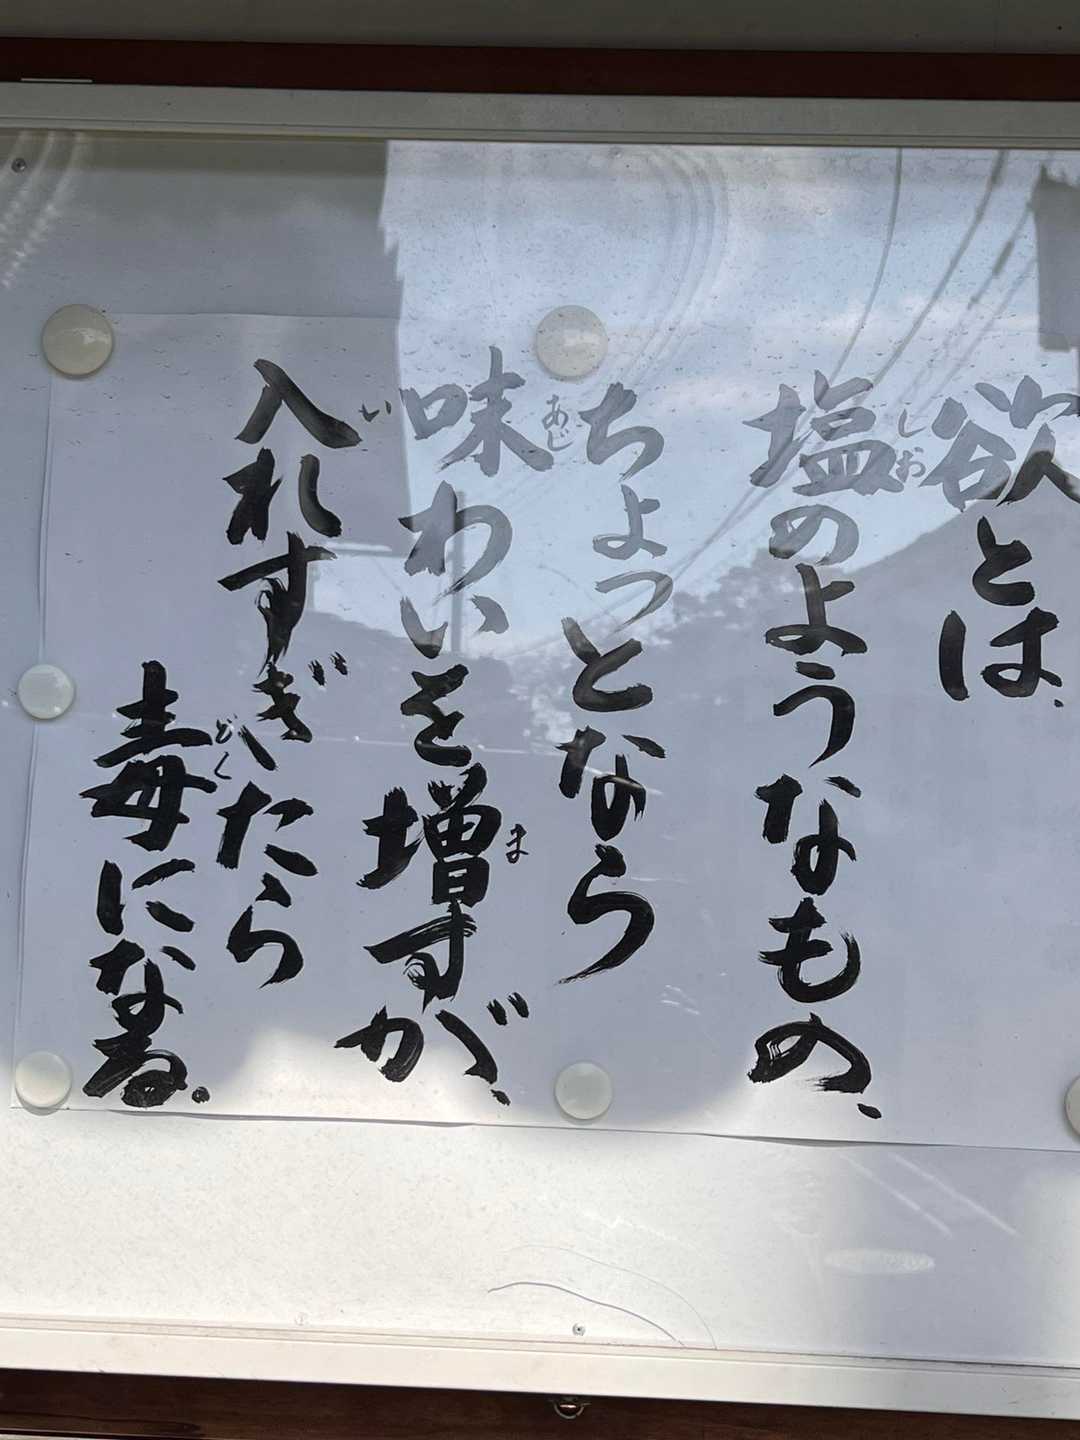 欲とは、
塩のようなもの、
しお
ちょっとなら
味わいを増すが、
あじ
ま
入れすぎたら
い
毒になる。
どく